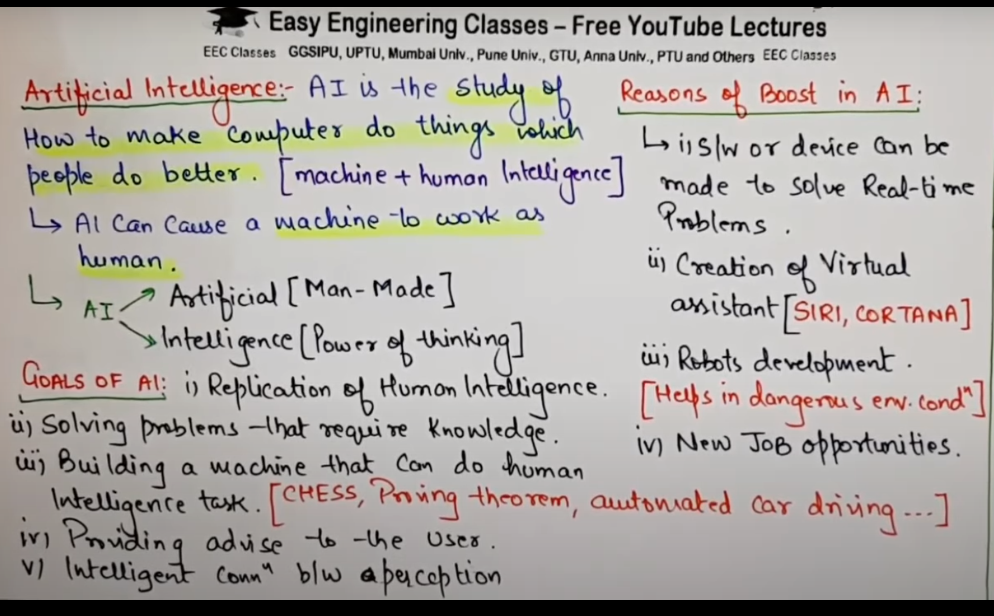 Easy Engineering Classes – Free YouTube Lectures
EEC Classes GGSIPU, UPTU, Mumbai Univ., Pune Univ., GTU, Anna Univ., PTU and Others EEC Classes
Artificial Intelligence:- AI is the study of
How to make computer do things which
people do better. [machine + human Intelligence]
↳ AI Can Cause a machine to work as
human.
↳ AI → Artificial [Man-Made]
→ Intelligence [Power of thinking]
GOALS OF AI: i) Replication of Human Intelligence.
ii) Solving problems that require Knowledge.
iii) Building a machine that can do human
Intelligence task. [CHESS, Proving theorem, automated car driving ...]
iv) Providing advise to the user.
v) Intelligent Connⁿ b/w perception
Reasons of Boost in AI:
↳ i) S/W or device can be
made to solve Real-time
Problems.
ii) Creation of Virtual
assistant [SIRI, CORTANA]
iii) Robots development.
[Helps in dangerous env. condⁿ]
iv) New JOB opportunities.